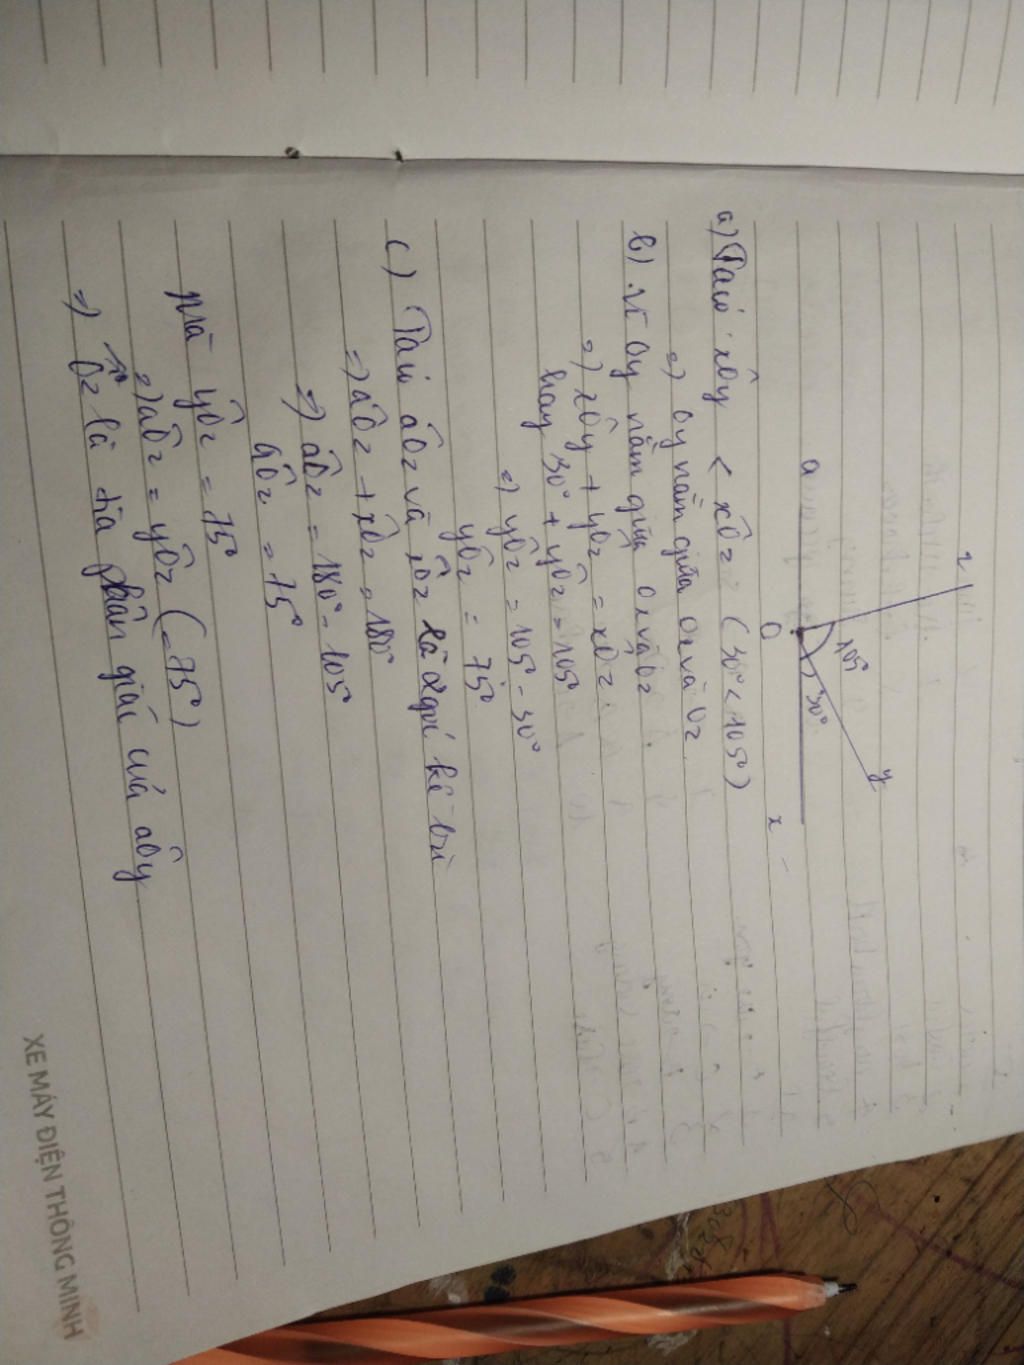 z
y
105°
30°
a
O
x
a) Ta có: xÔy < xÔz (30° < 105°)
=) Oy nằm giữa Ox và Oz
b) Vì Oy nằm giữa Ox và Oz
=) xÔy + yÔz = xÔz
hay 30° + yÔz = 105°
=) yÔz = 105° - 30°
yÔz = 75°
c) Ta có aÔz và xÔz là 2 góc kề bù
=) aÔz + xÔz = 180°
=) aÔz = 180° - 105°
aÔz = 75°
mà yÔz = 75°
=) aÔz = yÔz (=75°)
=) Oz là tia phân giác của aÔy
XE MÁY ĐIỆN THÔNG MINH